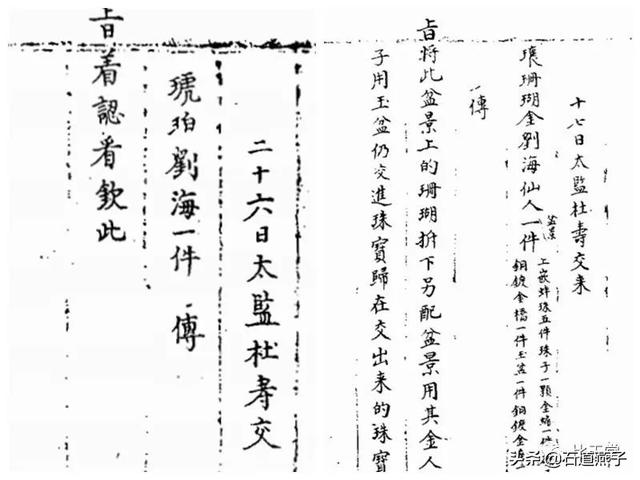 十七日太監杜壽交来
瓌珊瑚金劉海仙人一件
盆景
上嵌蚌珠五件珠子一顆金蟾一
銅鍍金檔一件玉盆一件銅鍍金
傳
旨将此盆景上的珊瑚拆下另配盆景用其金人
子用玉盆仍交進珠寶歸在交出来的珠寶
二十六日太監杜壽交
琥珀劉海一件 傳
旨着認看欽此
头条@石道燕子